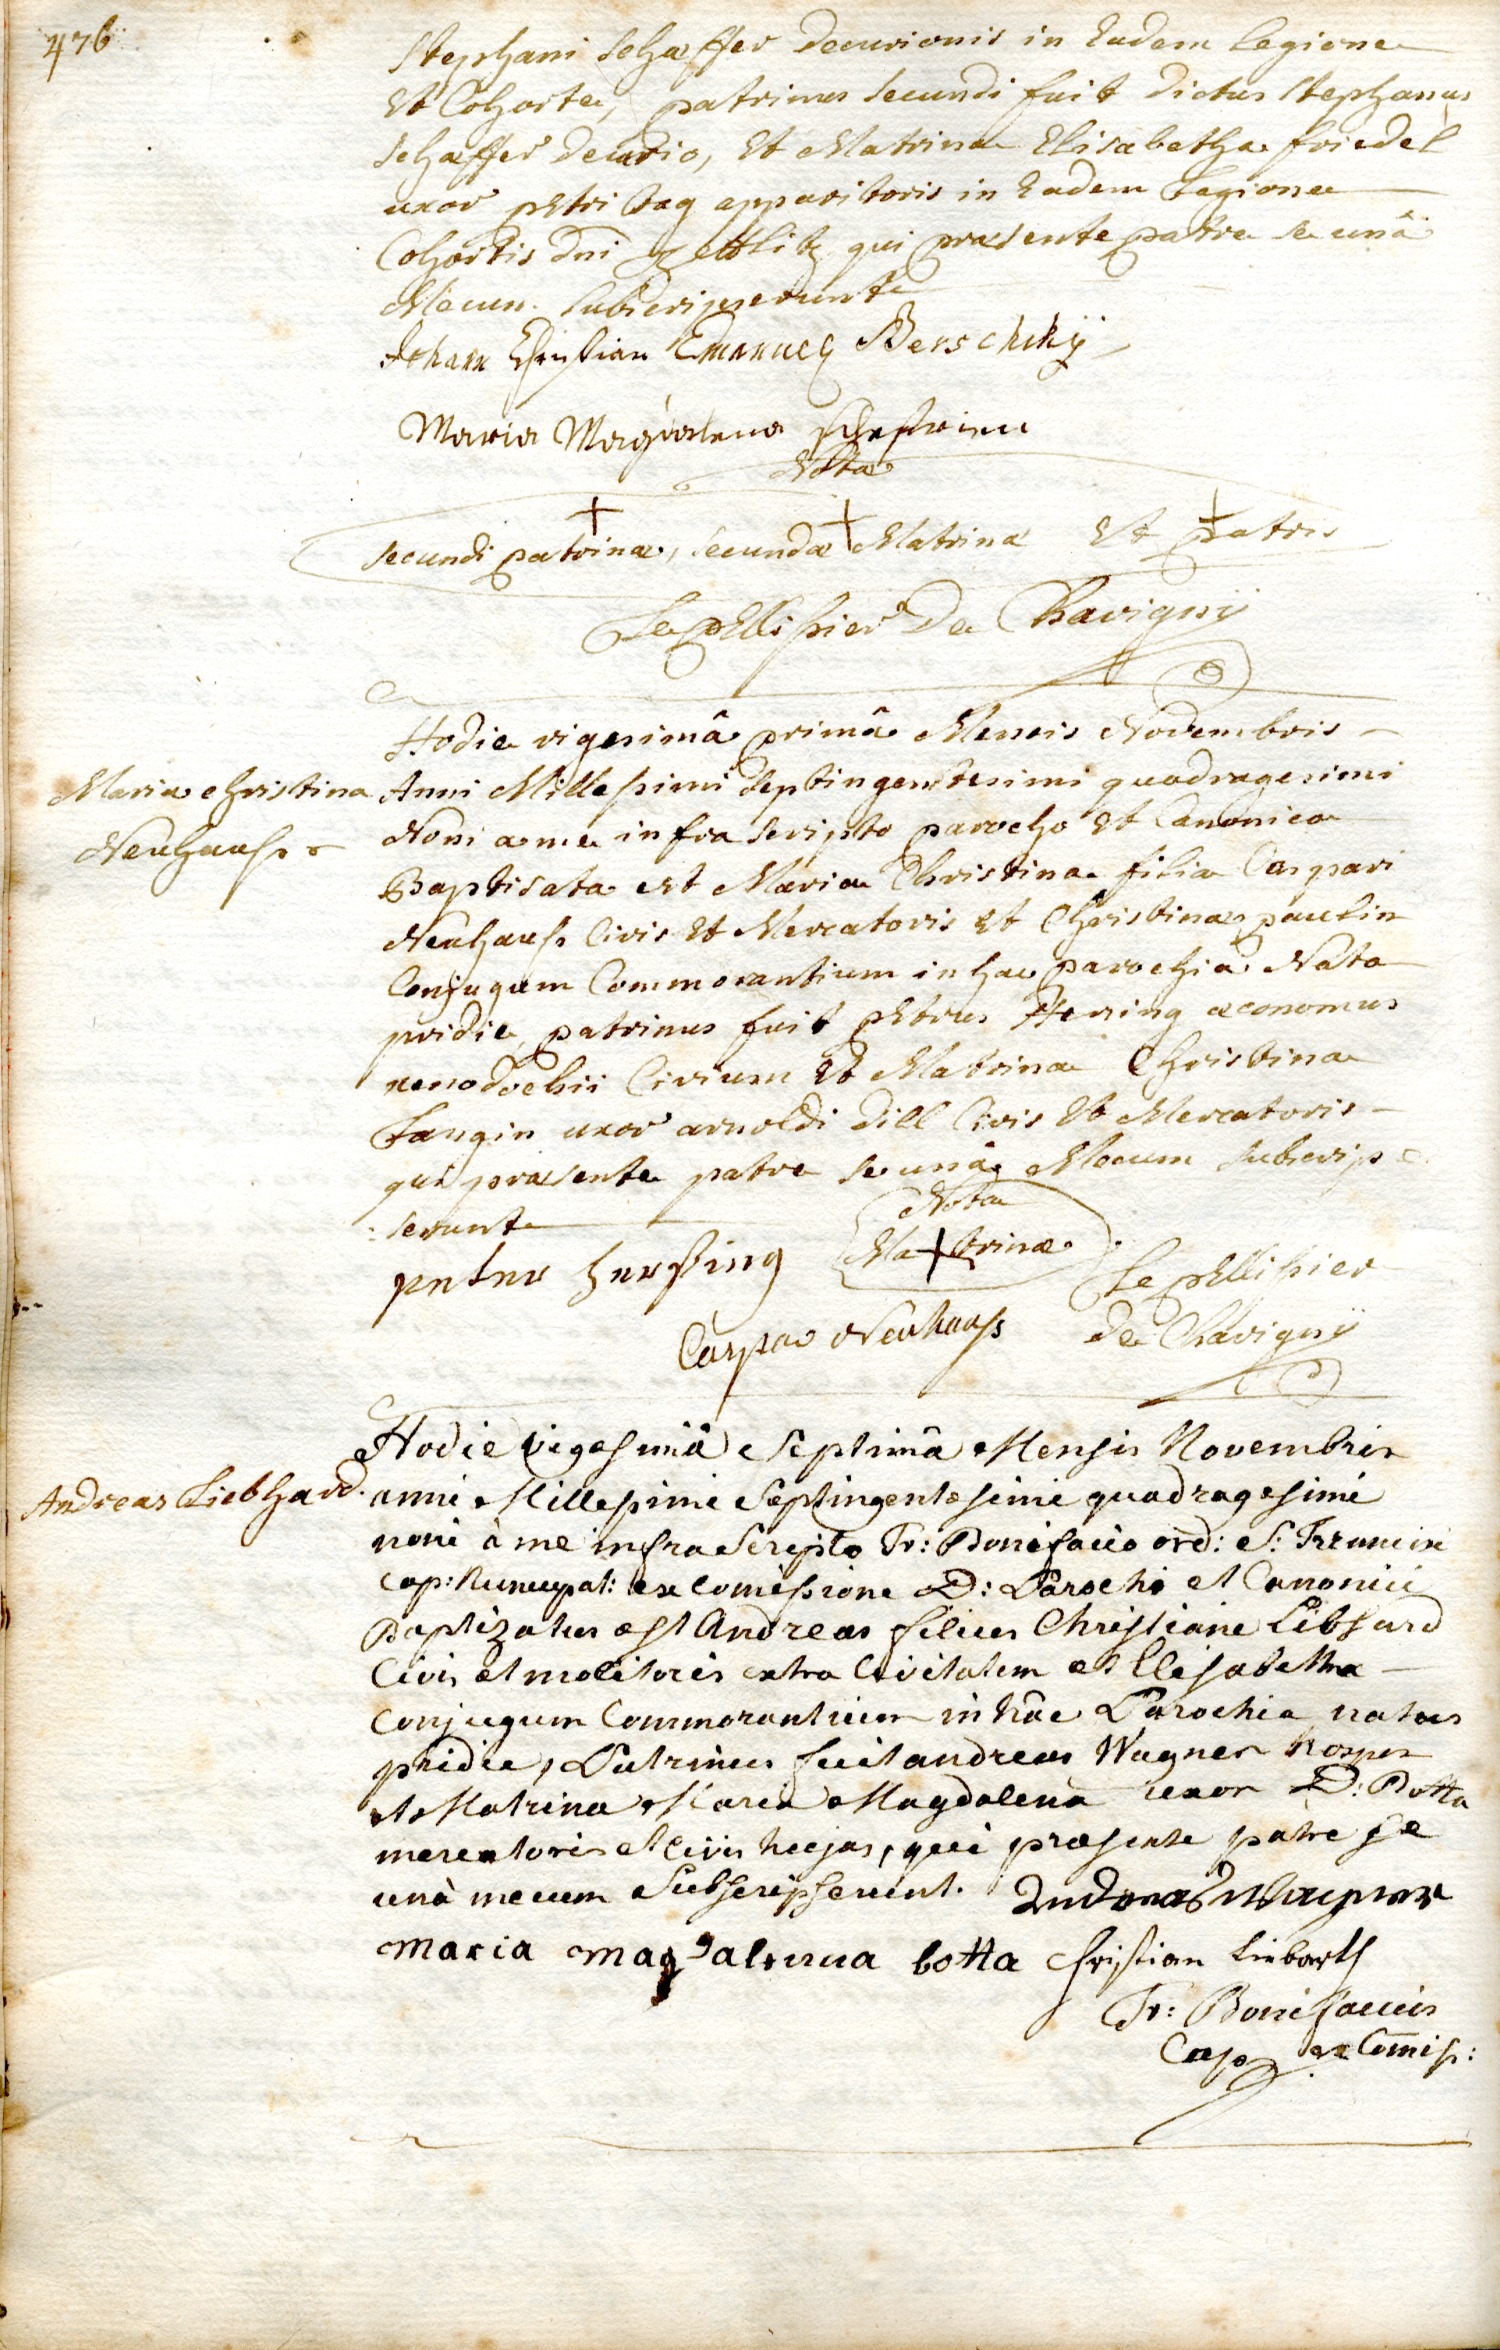 476
Stephani Schæffer decurionis in Eadem Legione
Et Cohorte, patrinus secundi fuit dictus Stephanus
Schæffer decurio, Et Matrina Elisabetha friedel
uxor petri tag apparitoris in Eadem Legione
Cohortis Dni Zettlitz qui præsente patre se unâ
Mecum subscripserunt
Johann Christian Emanuel Berschky
Maria Magdalena
Nota
secundi patrinæ, secundæ Matrinæ Et Patris
Le Pellissier De Chavigny
Hodie vigesimâ primâ Mensis Novembris
Maria christina
Neuhauss
Anni Millessimi Septingentesimi quadragesimi
Noni a me infra scripto parocho Et Canonico
Baptisata est Maria Christina filia Caspari
Neuhauss Civis Et Mercatoris Et Christinæ paulin
Conjugum Commorantium in hac parochiâ Nata
pridie, patrinus fuit petrus Hersing œconomus
xenodochii Civium Et Matrina Christina
Langin uxor arnoldi Dill Civis Et Mercatoris
qui præsente patre se unâ Mecum subscrip
serunt
Nota
Matrinæ
peter hersing
Le Pellissier
de Chavigny
Caspar Neuhauss
Hodie vigesimâ Septimâ Mensis Novembris
Andreas Liebhard.
anni Millesimi Septingentesimi quadragesimi
noni à me infra Scripto Fr: Bonifacio ord: S: Francisci
cap: Nuncupat: ex Comissione D: Parochi et Canonici
Baptizatus est Andreas filius Christiani Libhard
Civis et molitoris extra Civitatem et Elisabetha
Conjugum Commorantium in hâc Parochia natus
pridie, Patrinus fuit andreas Wagner hospes
et Matrina Maria Magdalena uxor D: Botta
mercatoris et Civis hujas, qui præsente patre se
unà mecum Subscripserunt. Andreas Wagner
Maria Magdalena botta Christian Liebarth
Fr: Bonifacius
Cap ex Comiss: